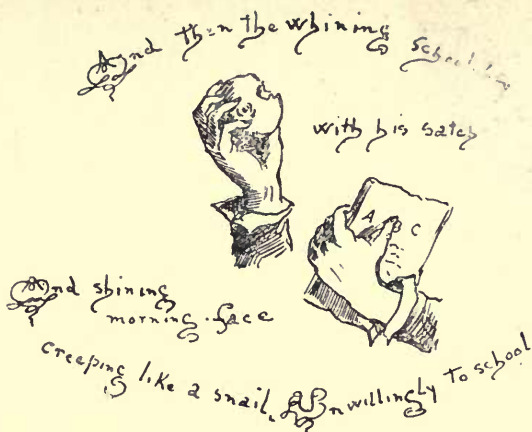 And then the whining school
with his satch
A B C
And shining
morning face
creeping like a snail, Unwillingly to school